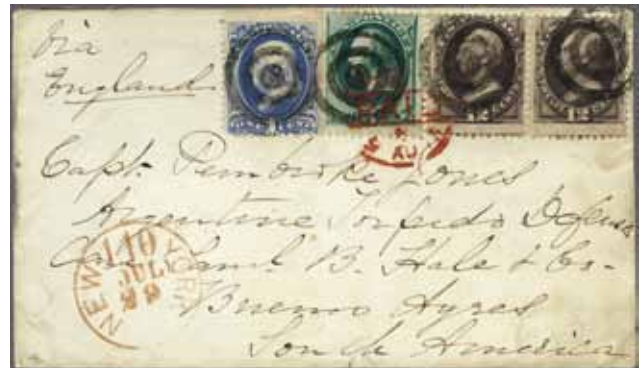 Via
England
Capt. Pembroke Jones
Argentine Torpedo Defense
Care Saml. B. Hale & Co.
Buenos Ayres
South America
NEW YORK
110
JUL
29
12
12